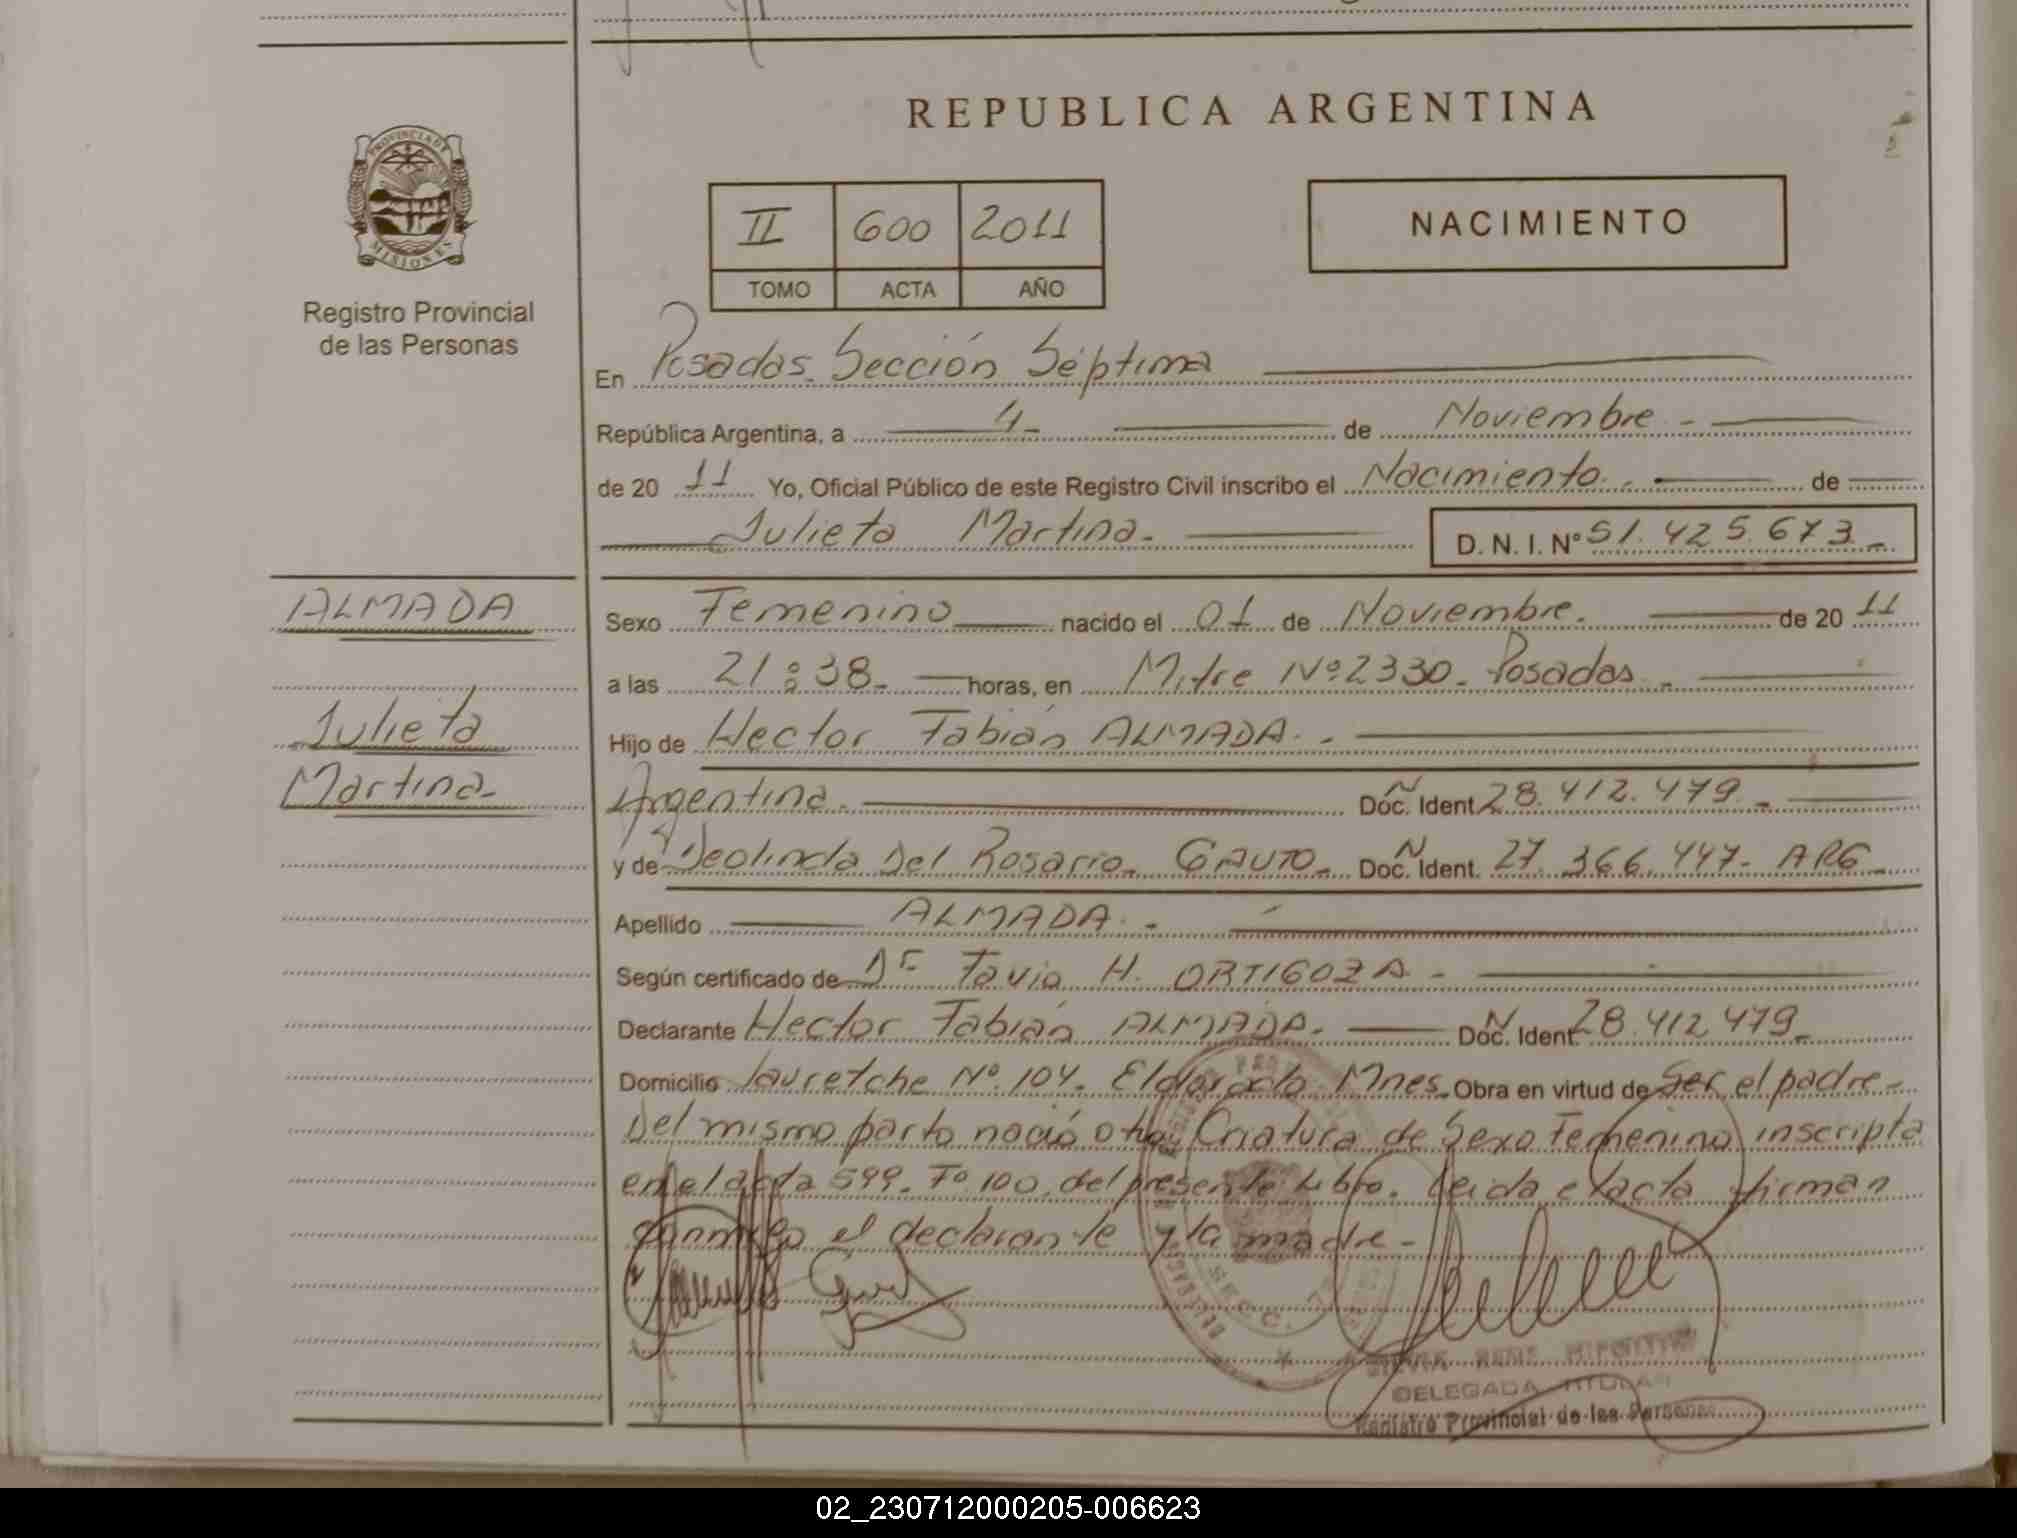 REPUBLICA ARGENTINA
PROVINCIA DE
MISIONES
Registro Provincial
de las Personas
II 600 2011
TOMO ACTA AÑO
NACIMIENTO
En Posadas Sección Séptima
República Argentina, a 4- de Noviembre -
de 20 11 Yo, Oficial Público de este Registro Civil inscribo el Nacimiento. - de
Julieta Martina.- D. N. I. Nº 51.425.673-
ALMADA
Julieta
Martina-
Sexo Femenino nacido el 01 de Noviembre. de 20 11
a las 21:38- horas, en Mitre Nº 2330- Posadas -
Hijo de Hector Fabián ALMADA. -
Argentina. Doc. Ident 28.412.479 -
y de Deolinda Del Rosario- GAUTO- Doc. Ident. 27.366.447- ARG-
Apellido ALMADA. -
Según certificado de Dr Favio H. ORTIGOZA -
Declarante Hector Fabián ALMADA- Doc. Ident. 28.412.479-
Domicilio Jauretche Nº 104- Eldorado- Mnes. Obra en virtud de Ser el padre-
Del mismo parto nació otra Criatura de Sexo Femenino inscripta
en el acta 599- Fº 100, del presente Libro. Leida exacta firman
conmigo el declarante y la madre-
SECC. 7
DELEGADA TITULAR
Registro Provincial de las Personas
02_230712000205-006623